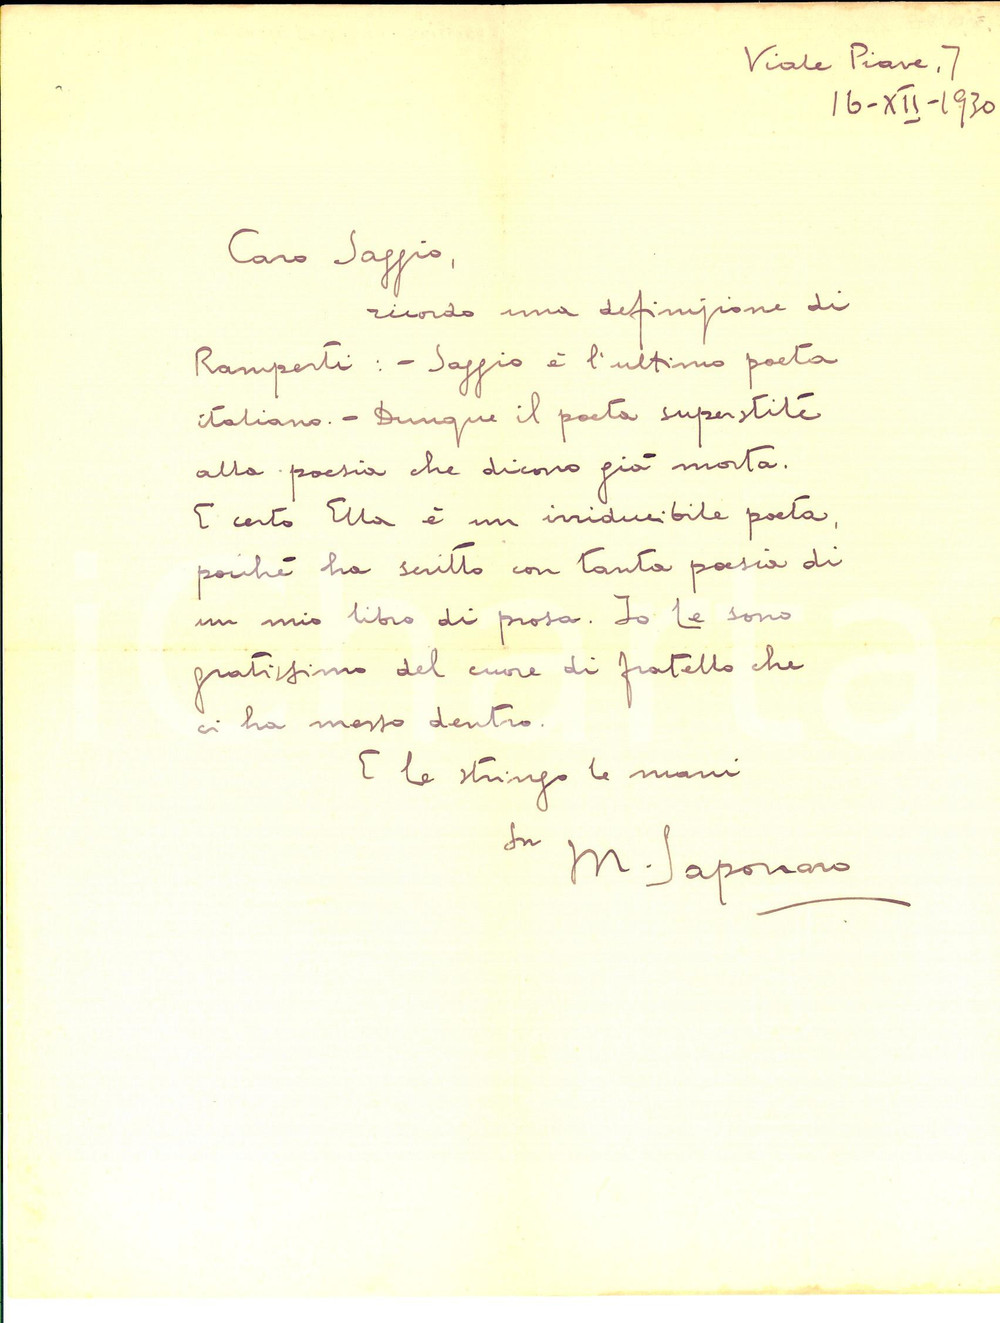 Viale Piave, 7
16-XII-1930
Caro Saggio,
ricordo una definizione di
Ramperti : - Saggio è l'ultimo poeta
italiano. - Dunque il poeta superstite
alla poesia che dicono già morta.
E certo Ella è un irriducibile poeta,
poiché ha scritto con tanta poesia di
un mio libro di prosa. Io Le sono
gratissimo del cuore di fratello che
ci ha messo dentro.
E Le stringo le mani
Suo M. Saponaro
iCharta